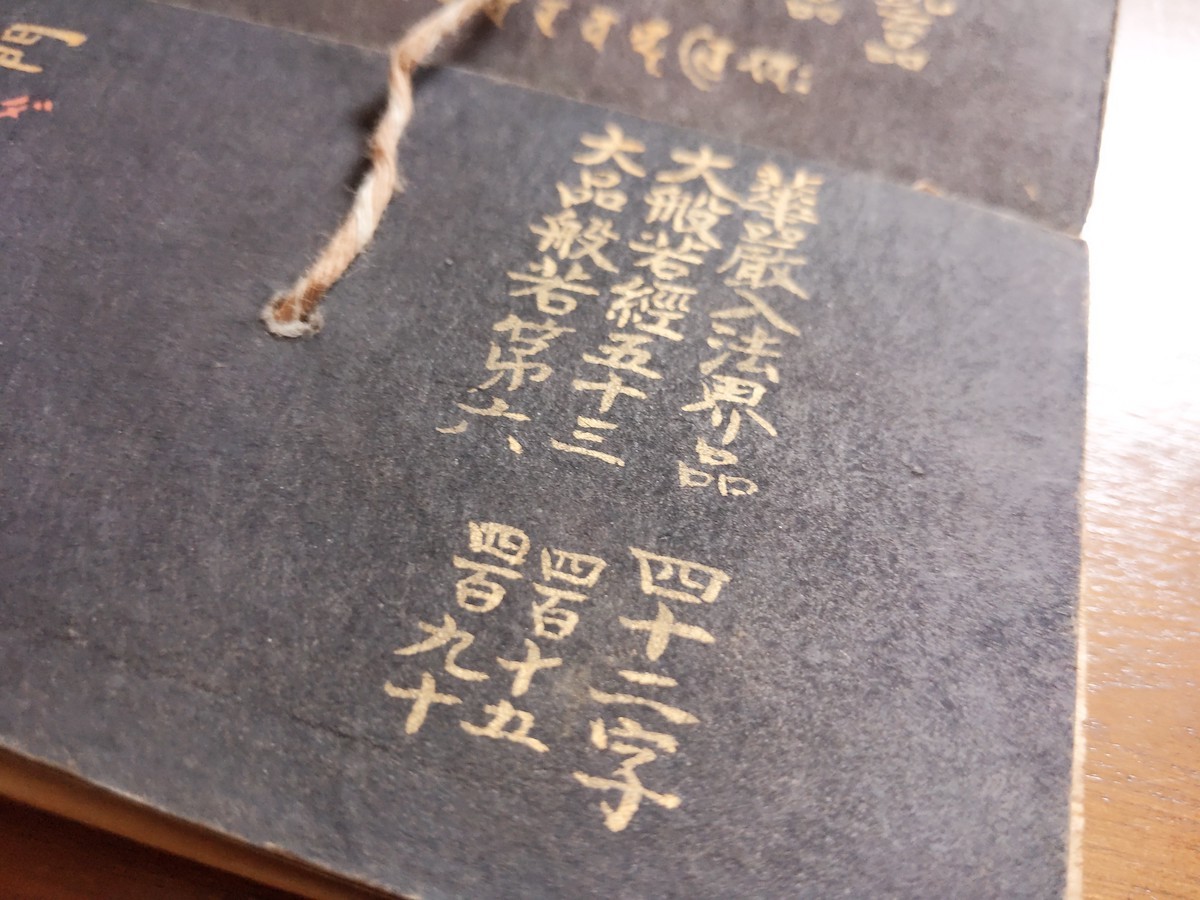 華嚴入法界品 四十二字
大般若經五十三 四百十五
大品般若第六 四百九十
門
品
品